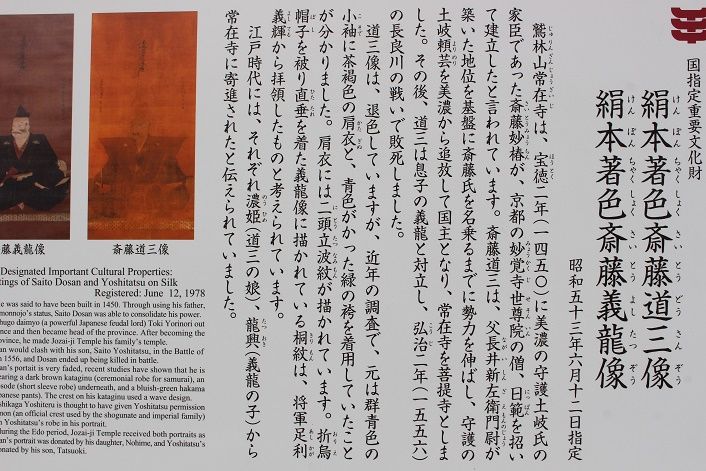 国指定重要文化財
絹本著色斎藤道三像
絹本著色斎藤義龍像
昭和五十三年六月十二日指定
鷲林山常在寺は、宝徳二年(一四五〇)に美濃の守護土岐氏の
家臣であった斎藤妙椿が、京都の妙覚寺世尊院の僧、日範を招い
て建立したと言われています。斎藤道三は、父長井新左衛門尉が
築いた地位を基盤に斎藤氏を名乗るまでに勢力を伸ばし、守護の
土岐頼芸を美濃から追放して国主となり、常在寺を菩提寺としま
した。その後、道三は息子の義龍と対立し、弘治二年(一五五六)
の長良川の戦いで敗死しました。
道三像は、退色していますが、近年の調査で、元は群青色の
小袖に茶褐色の肩衣と、青色がかった緑の袴を着用していたこと
が分かりました。肩衣には二頭立波紋が描かれています。折烏
帽子を被り直垂を着た義龍像に描かれている桐紋は、将軍足利
義輝から拝領したものと考えられています。
江戸時代には、それぞれ濃姫(道三の娘)、龍興(義龍の子)から
常在寺に寄進されたと伝えられていました。
斎藤道三像
藤義龍像
Designated Important Cultural Properties:
tings of Saito Dosan and Yoshitatsu on Silk
Registered: June 12, 1978
e was said to have been built in 1450. Through using his father,
monnojo's status, Saito Dosan was able to consolidate his power.
hugo daimyo (a powerful Japanese feudal lord) Toki Yorinori out
nce and then became head of the province. After becoming the
rovince, he made Jozai-ji Temple his family's temple.
an would clash with his son, Saito Yoshitatsu, in the Battle of
n 1556, and Dosan ended up being killed in battle.
an's portrait is very faded, recent studies have shown that he is
earing a dark brown kataginu (ceremonial robe for samurai), an
osode (short sleeve robe) underneath, and a bluish-green hakama
panese pants). The crest on his kataginu used a wave design.
shikaga Yoshiteru is thought to have given Yoshitatsu permission
non (an official crest used by the shogunate and imperial family)
n Yoshitatsu's robe in his portrait.
during the Edo period, Jozai-ji Temple received both portraits as
an's portrait was donated by his daughter, Nohime, and Yoshitatsu's
donated by his son, Tatsuoki.